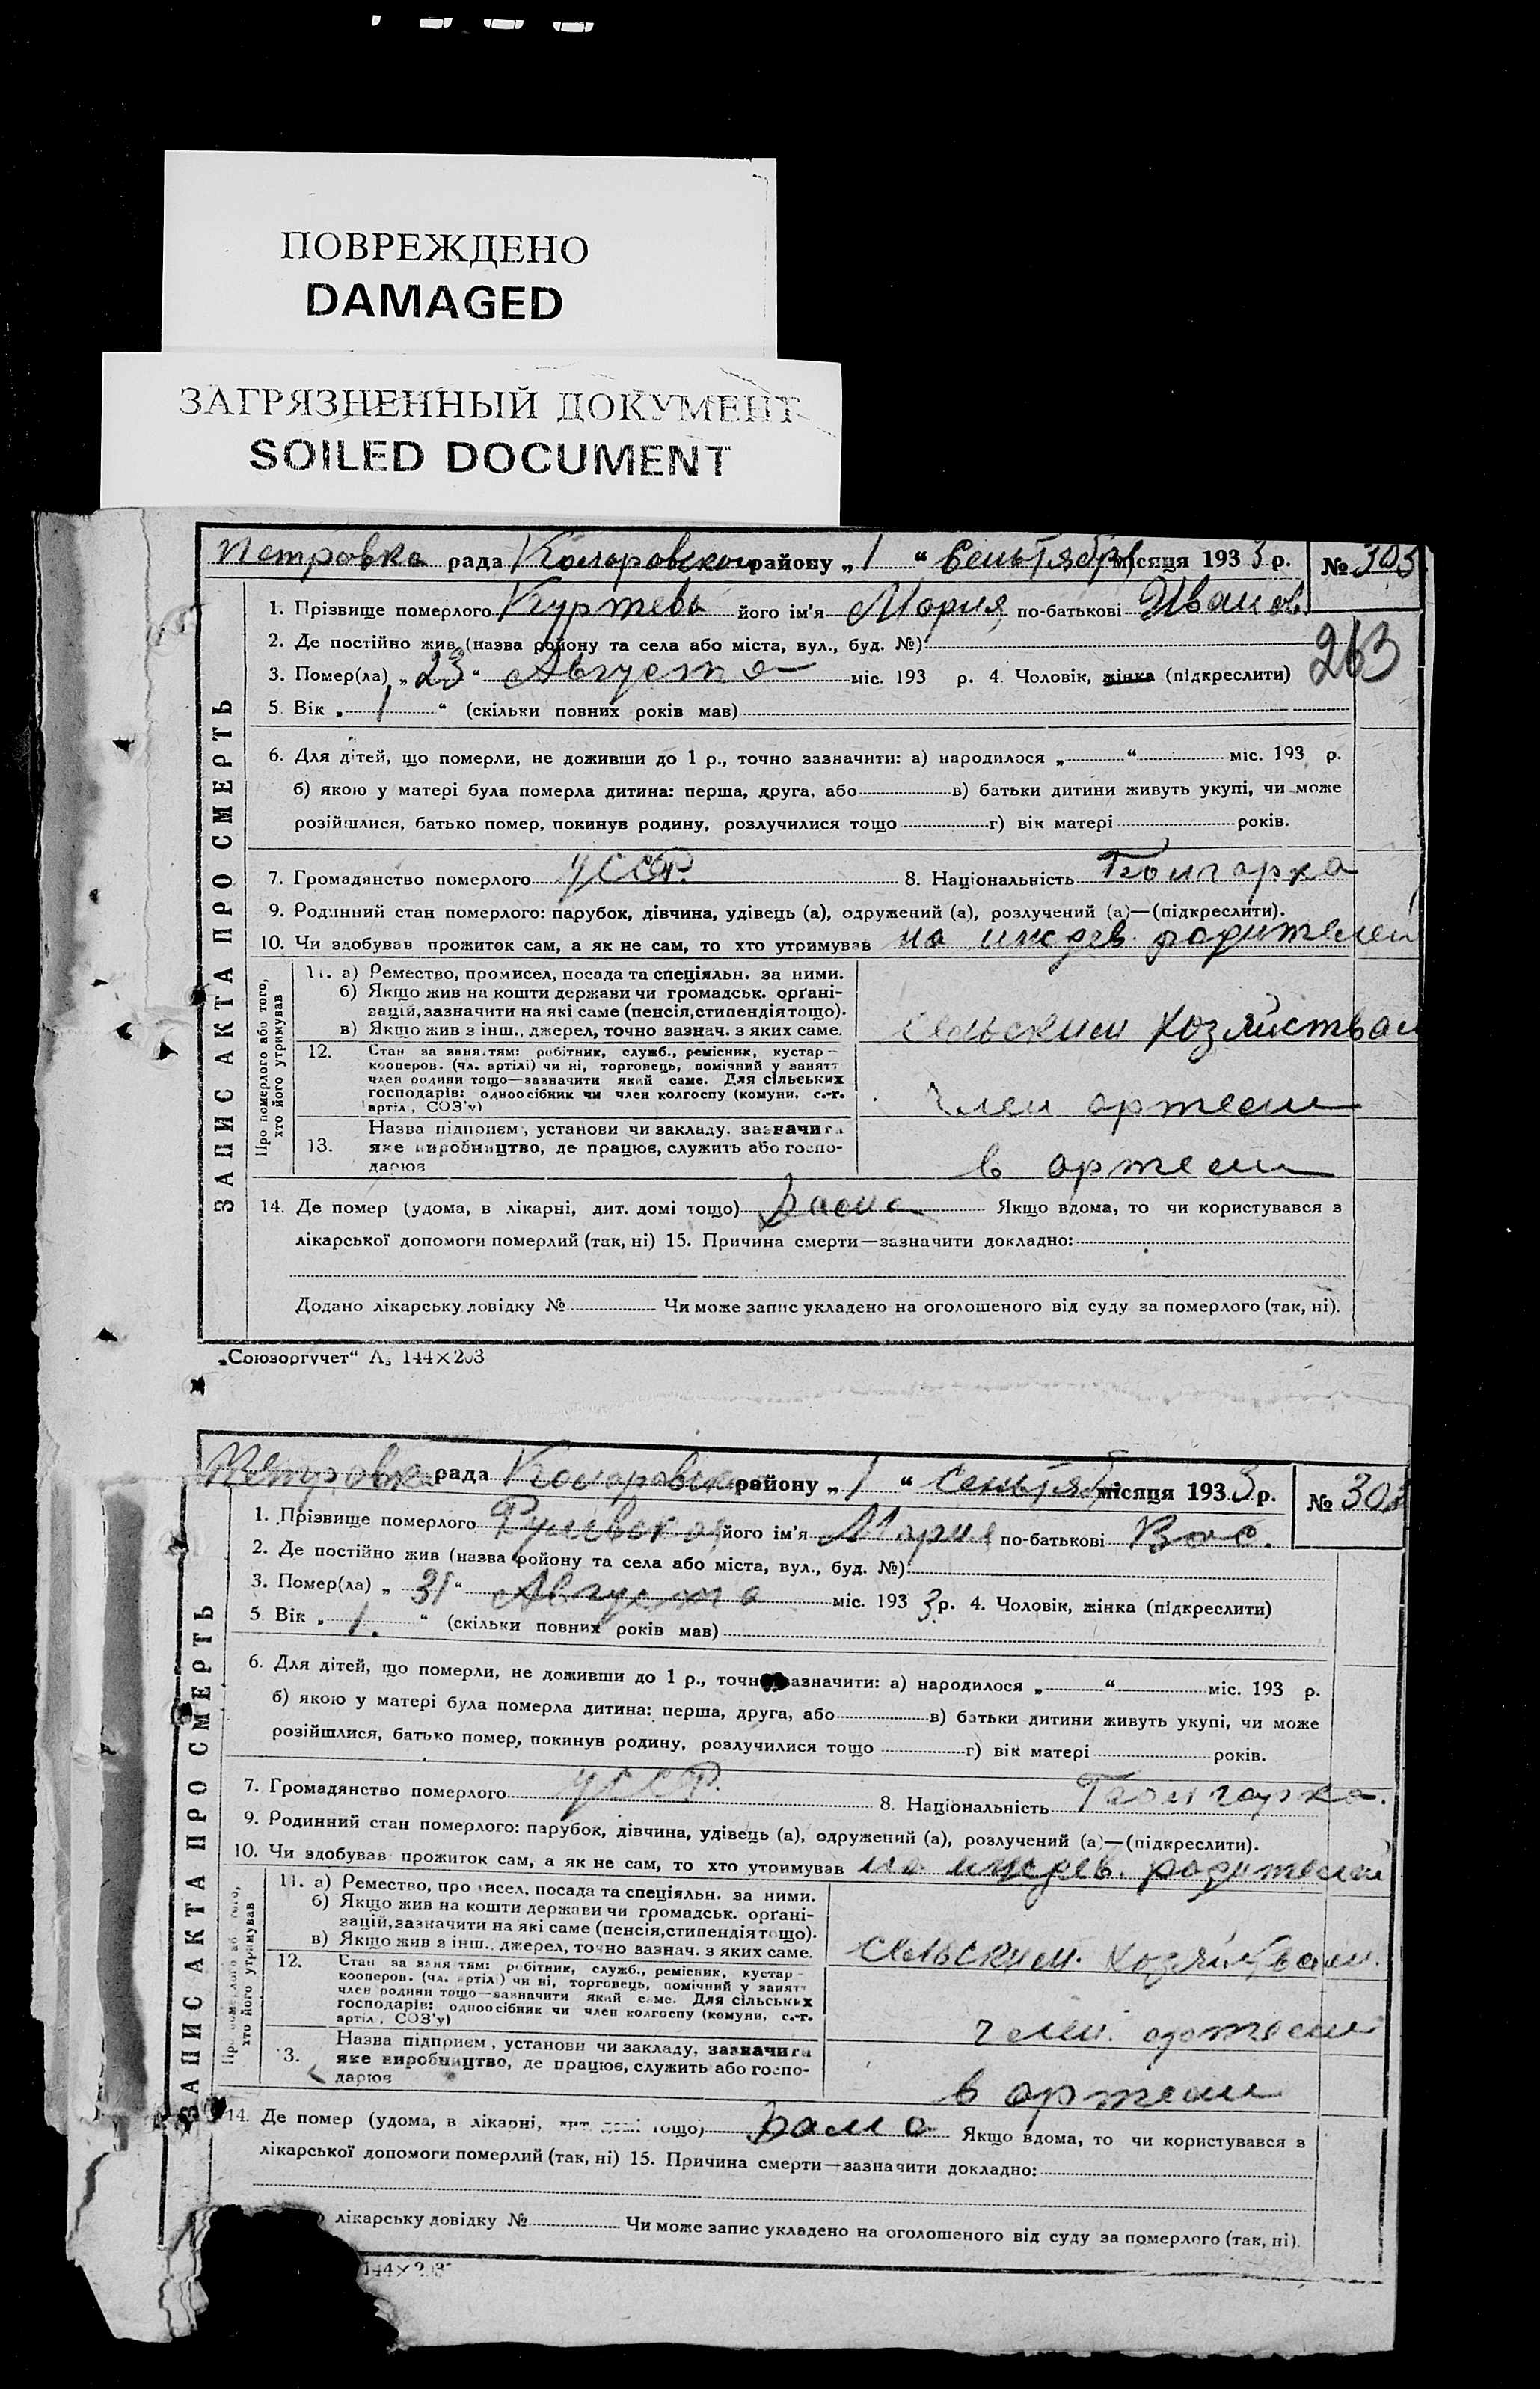 ПОВРЕЖДЕНО
DAMAGED
ЗАГРЯЗНЕННЫЙ ДОКУМЕНТ
SOILED DOCUMENT
Петровка рада Коларовском району „ 1 “ Сентября місяця 193 3 р. № 303
1. Прізвище померлого Куртева його ім'я Мария, по-батькові Иванов
2. Де постійно жив (назва району та села або міста, вул., буд. №)
263
3. Помер(ла) „ 23 “ Августа міс. 193 р. 4. Чоловік, жінка (підкреслити)
5. Вік „ 1 “ (скільки повних років мав)
6. Для дітей, що померли, не доживши до 1 р., точно зазначити: а) народилося „ “ міс. 193 р.
б) якою у матері була померла дитина: перша, друга, або в) батьки дитини живуть укупі, чи може
розійшлися, батько помер, покинув родину, розлучилися тощо г) вік матері років.
7. Громадянство померлого УССР. 8. Національність Болгарка
9. Родинний стан померлого: парубок, дівчина, удівець (а), одружений (а), розлучений (а)—(підкреслити).
10. Чи здобував прожиток сам, а як не сам, то хто утримував на иждев. родителей
ЗАПИС АКТА ПРО СМЕРТЬ
Про померлого або того, хто його утримував
11. а) Ремество, промисел, посада та спеціяльн. за ними.
б) Якщо жив на кошти держави чи громадськ. орґані-
зацій, зазначити на які саме (пенсія, стипендія тощо).
в) Якщо жив з інш., джерел, точно зазнач. з яких саме.
Сельским хозяйствам
12. Стан за занятям: робітник, служб., ремісник, кустар—
кооперов. (чл. артілі) чи ні, торговець, помічний у занятт
член родини тощо—зазначити який саме. Для сільських
господарів: одноосібник чи член колгоспу (комуни, с.-г.
артіл., СОЗ'у)
член артели
13. Назва підприєм., установи чи закладу, зазначити
яке виробництво, де працює, служить або госпо-
дарює
в артели
14. Де помер (удома, в лікарні, дит. домі тощо) Дома Якщо вдома, то чи користувався з
лікарської допомоги померлий (так, ні) 15. Причина смерти—зазначити докладно:
Додано лікарську довідку № Чи може запис укладено на оголошеного від суду за померлого (так, ні).
„Союзоргучет“ А₅ 144×203
Петровка рада Коларовском району „ 1 “ Сентяб місяця 193 3 р. № 303
1. Прізвище померлого його ім'я Мария по-батькові Вас.
2. Де постійно жив (назва району та села або міста, вул., буд. №)
3. Помер(ла) „ 31 “ Августа міс. 193 3 р. 4. Чоловік, жінка (підкреслити)
5. Вік „ 1. “ (скільки повних років мав)
6. Для дітей, що померли, не доживши до 1 р., точно зазначити: а) народилося „ “ міс. 193 р.
б) якою у матері була померла дитина: перша, друга, або в) батьки дитини живуть укупі, чи може
розійшлися, батько помер, покинув родину, розлучилися тощо г) вік матері років.
7. Громадянство померлого УССР. 8. Національність Болгарка.
9. Родинний стан померлого: парубок, дівчина, удівець (а), одружений (а), розлучений (а)—(підкреслити).
10. Чи здобував прожиток сам, а як не сам, то хто утримував на иждев. родителей
ЗАПИС АКТА ПРО СМЕРТЬ
хто його утримував
11. а) Ремество, промисел, посада та спеціяльн. за ними.
б) Якщо жив на кошти держави чи громадськ. орґані-
зацій, зазначити на які саме (пенсія, стипендія тощо).
в) Якщо жив з інш., джерел, точно зазнач. з яких саме.
Сельским. хозяйствам.
12. Стан за занятям: робітник, служб., ремісник, кустар—
кооперов. (чл. артілі) чи ні, торговець, помічний у занятт
член родини тощо—зазначити який саме. Для сільських
господарів: одноосібник чи член колгоспу (комуни, с.-г.
артіл., СОЗ'у)
член. артели
3. Назва підприєм., установи чи закладу, зазначити
яке виробництво, де працює, служить або госпо-
дарює
в артели
14. Де помер (удома, в лікарні, дит. домі тощо) Дома Якщо вдома, то чи користувався з
лікарської допомоги померлий (так, ні) 15. Причина смерти—зазначити докладно:
лікарську довідку № Чи може запис укладено на оголошеного від суду за померлого (так, ні).
144×203